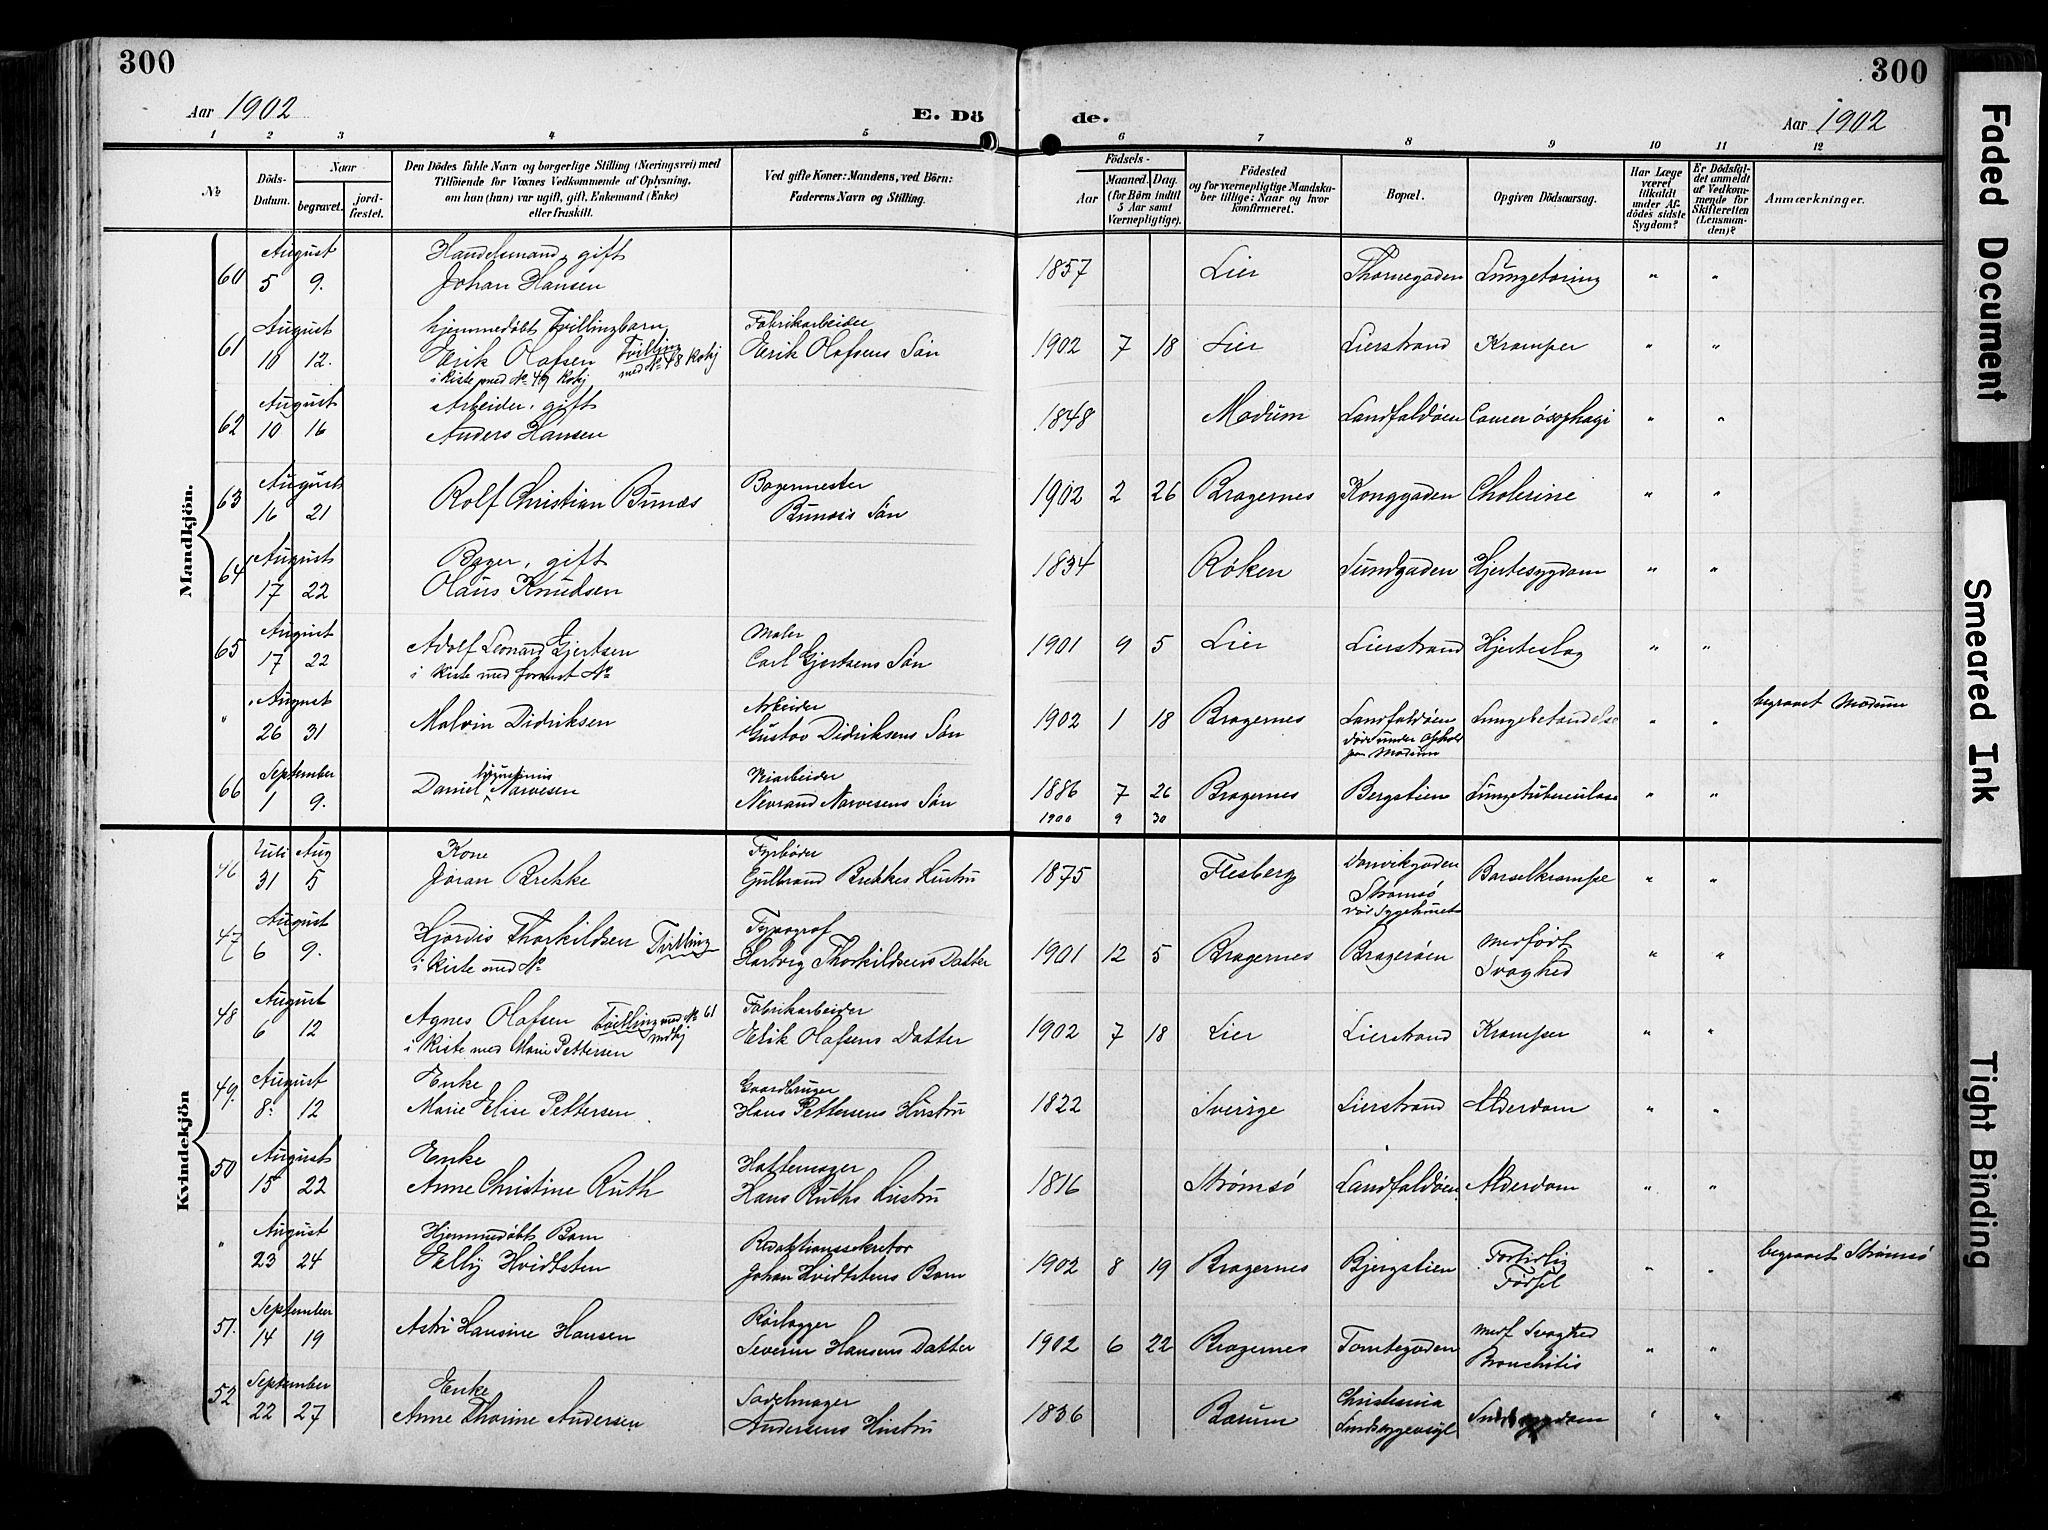 300
300
Aar 1902
E. Dö
de.
Aar 1902
1 2 3 4 5 6 7 8 9 10 11 12
No
Döds-
Datum.
Naar
begravet.
jord-
fæstet.
Den Dödes fulde Navn og borgerlige Stilling (Næringsvei) med
Tilföiende for Voxnes Vedkommende af Oplysning,
om han (hun) var ugift, gift, Enkemand (Enke)
eller fraskilt.
Ved gifte Koner: Mandens, ved Börn:
Faderens Navn og Stilling.
Födsels-
Aar
Maaned.
Dag.
(for Börn indtil
5 Aar samt
Værnepligtige).
Födested
og for værnepligtige Mandska-
ber tillige: Naar og hvor
konfirmeret.
Bopæl.
Opgiven Dödsaarsag.
Har Læge
været
tilkaldt
under Af-
dödes sidste
Sygdom?
Er Dödsfal-
det anmeldt
af Vedkom-
mende for
Skifteretten
(Lensman-
den)?
Anmærkninger.
Mandkjön.
August Handelsmand, gift
60 5 9. Johan Hansen 1857 Lier Thornegaden Lungetæring " "
August hjemmedøbt Tvillingbarn Fabrikarbeider
61 10 12. Erik Olafsen Tvilling med No 48 Kvkj Erik Olafsens Søn 1902 7 18 Lier Lierstrand Kramper " "
i Kiste med No 49 Kvkj
August Arbeider, gift
62 10 16 Anders Hansen 1848 Modum Landfaldøen Cancer øsophagi " "
August Bagermester
63 16 21 Rolf Christian Bunæs Bunæs's Søn 1902 2 26 Bragernes Konggaden Cholerine " "
August Bager, gift
64 17 22 Olaus Knudsen 1834 Røken Sundgaden Hjertesygdom " "
August Maler
65 17 22 Adolf Leonard Gjertsen Carl Gjertsens Søn 1901 9 5 Lier Lierstrand Hjerteslag " "
i Kiste med forrest No
August Arbeider
" 26 31 Malvin Didriksen Gustav Didriksens Søn 1902 1 18 Bragernes Landfaldøen Lungebetændelse " " begravet Modum
død under Ophold
paa Modum
September Veiarbeider
66 1 9. Daniel Narvesen Nevrand Narvesens Søn 1886 7 26 Bragernes Bergstien Lungetuberculose " "
1900 9 30
Kvindekjön
Juli Aug Kone Fyrbøder
46 31 5 Jøran Brekke Gulbrand Brekkes Hustru 1875 Flesberg Danvikgaden Barselkrampe " "
Strømsø
død Sygehuset
August Typograf
47 6 9. Hjørdis Thorkildsen Tvilling Hartvig Thorkildsens Datter 1901 12 5 Bragernes Bragerøen Medfødt Svaghed " "
i Kiste med No
August Fabrikarbeider
48 6 12 Agnes Olafsen Tvilling med No 61 Mdkj Erik Olafsens Datter 1902 7 18 Lier Lierstrand Kramper " "
i Kiste med Marie Pettersen
August Enke Gaardbruger
49. 8. 12 Marie Elise Pettersen Hans Pettersens Hustru 1822 Sverige Lierstrand Alderdom " "
August Enke Hattemager
50 15 22 Anne Christine Ruth Hans Ruths Hustru 1816 Strømsø Landfaldøen Alderdom " "
August Hjemmedøbt Barn Redaktionssekretær
" 23 24 Elly Hvidtsten Johan Hvidtstens Barn 1902 8 19 Bragernes Bjergstien Fortidlig Fødsel " " begravet Strømsø
September Rørlægger
51. 14 19 Astri Hansine Hansen Severin Hansens Datter 1902 6 22 Bragernes Tomtegaden Medf Svaghed Bronchitis " "
September Enke Sadelmager
52 22 27 Anne Thorine Andersen Andersens Hustru 1836 Bærum Christiania Sindssygeasyl Sindssygdom " "
Faded Document
Smeared Ink
Tight Binding